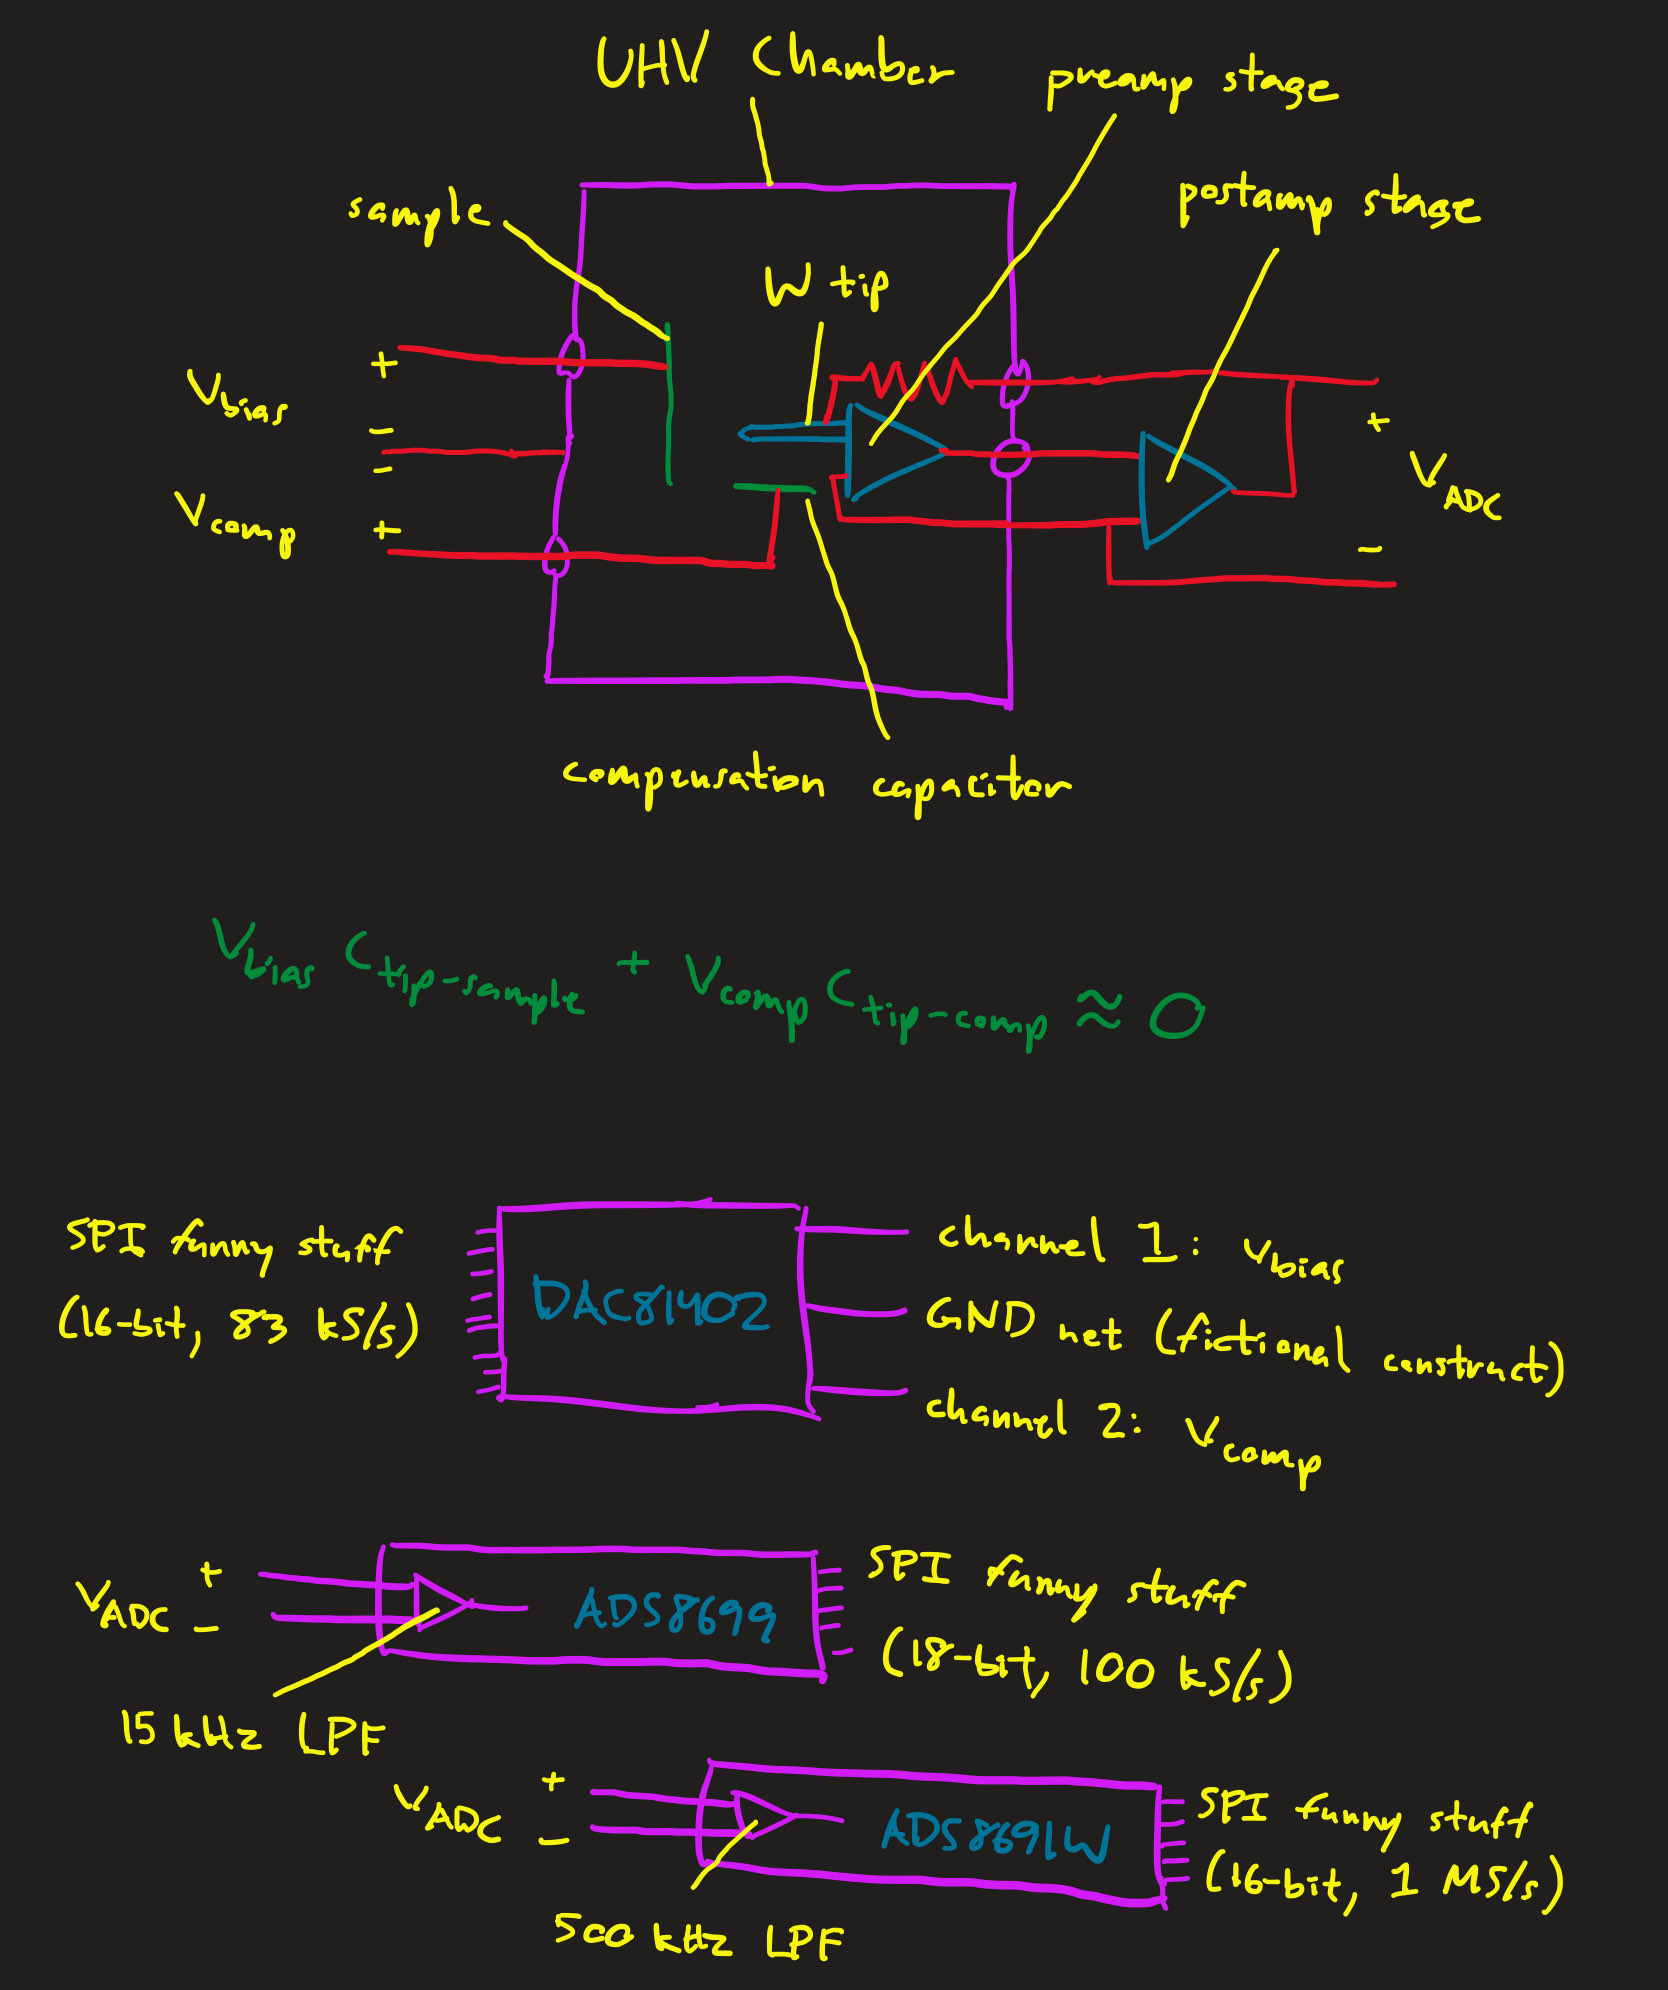 UHV Chamber
preamp stage
sample
postamp stage
W tip
+
Vbias
−
−
Vcomp
+
+
VADC
−
compensation capacitor
Vbias Ctip-sample + Vcomp Ctip-comp ≈ 0
SPI funny stuff
(16-bit, 83 kS/s)
DAC81402
channel 1: Vbias
GND net (fictional construct)
channel 2: Vcomp
+
VADC
−
ADS8699
SPI funny stuff
(18-bit, 100 kS/s)
15 kHz LPF
+
VADC
−
ADS8691W
SPI funny stuff
(16-bit, 1 MS/s)
500 kHz LPF